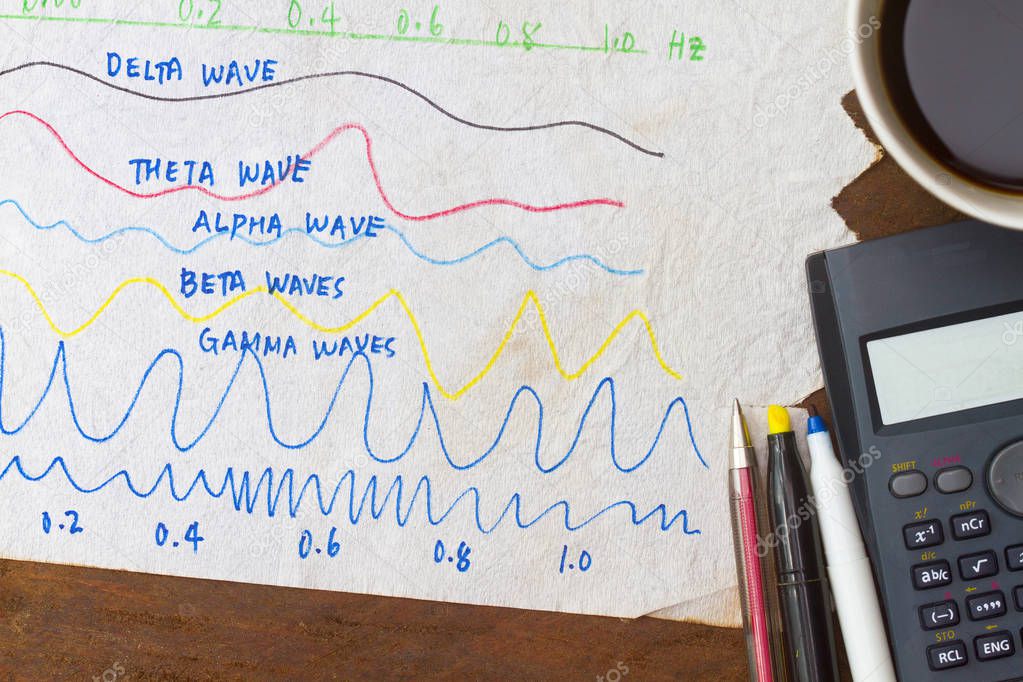 0.2 0.4 0.6 0.8 1.0 Hz
DELTA WAVE
THETA WAVE
ALPHA WAVE
BETA WAVES
GAMMA WAVES
0.2 0.4 0.6 0.8 1.0
SHIFT
x!
x-1
nPr
nCr
d/c
ab/c
√
(—)
STO
RCL
ENG
depositphotos